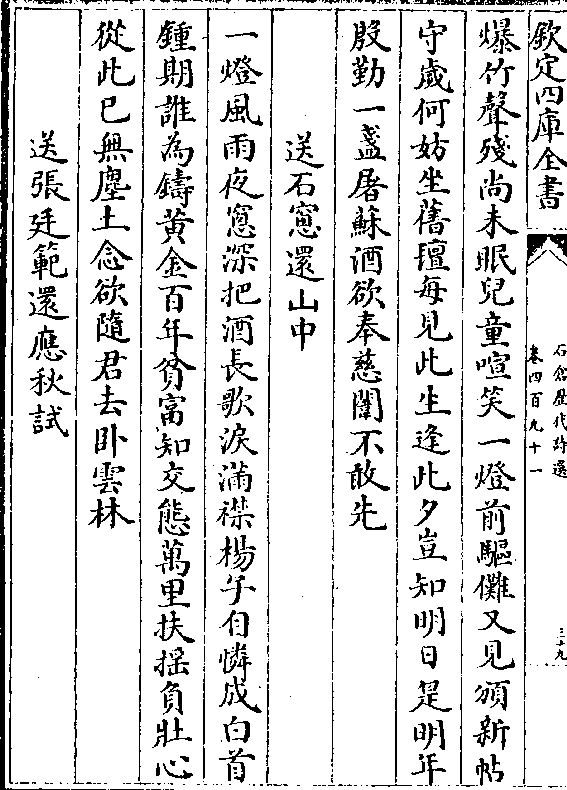 欽定四庫全書
石倉歷代詩選
卷四百九十一
三十九
爆竹聲殘尚未眠兒童喧笑一燈前驅儺又見頒新帖
守歲何妨坐舊氊每見此生逢此夕豈知明日是明年
殷勤一盞屠蘇酒欲奉慈闈不敢先
送石窻還山中
一燈風雨夜窻深把酒長歌淚滿襟楊子自憐成白首
鍾期誰為鑄黃金百年貧富知交態萬里扶摇負壯心
從此已無塵土念欲隨君去卧雲林
送張廷範還應秋試